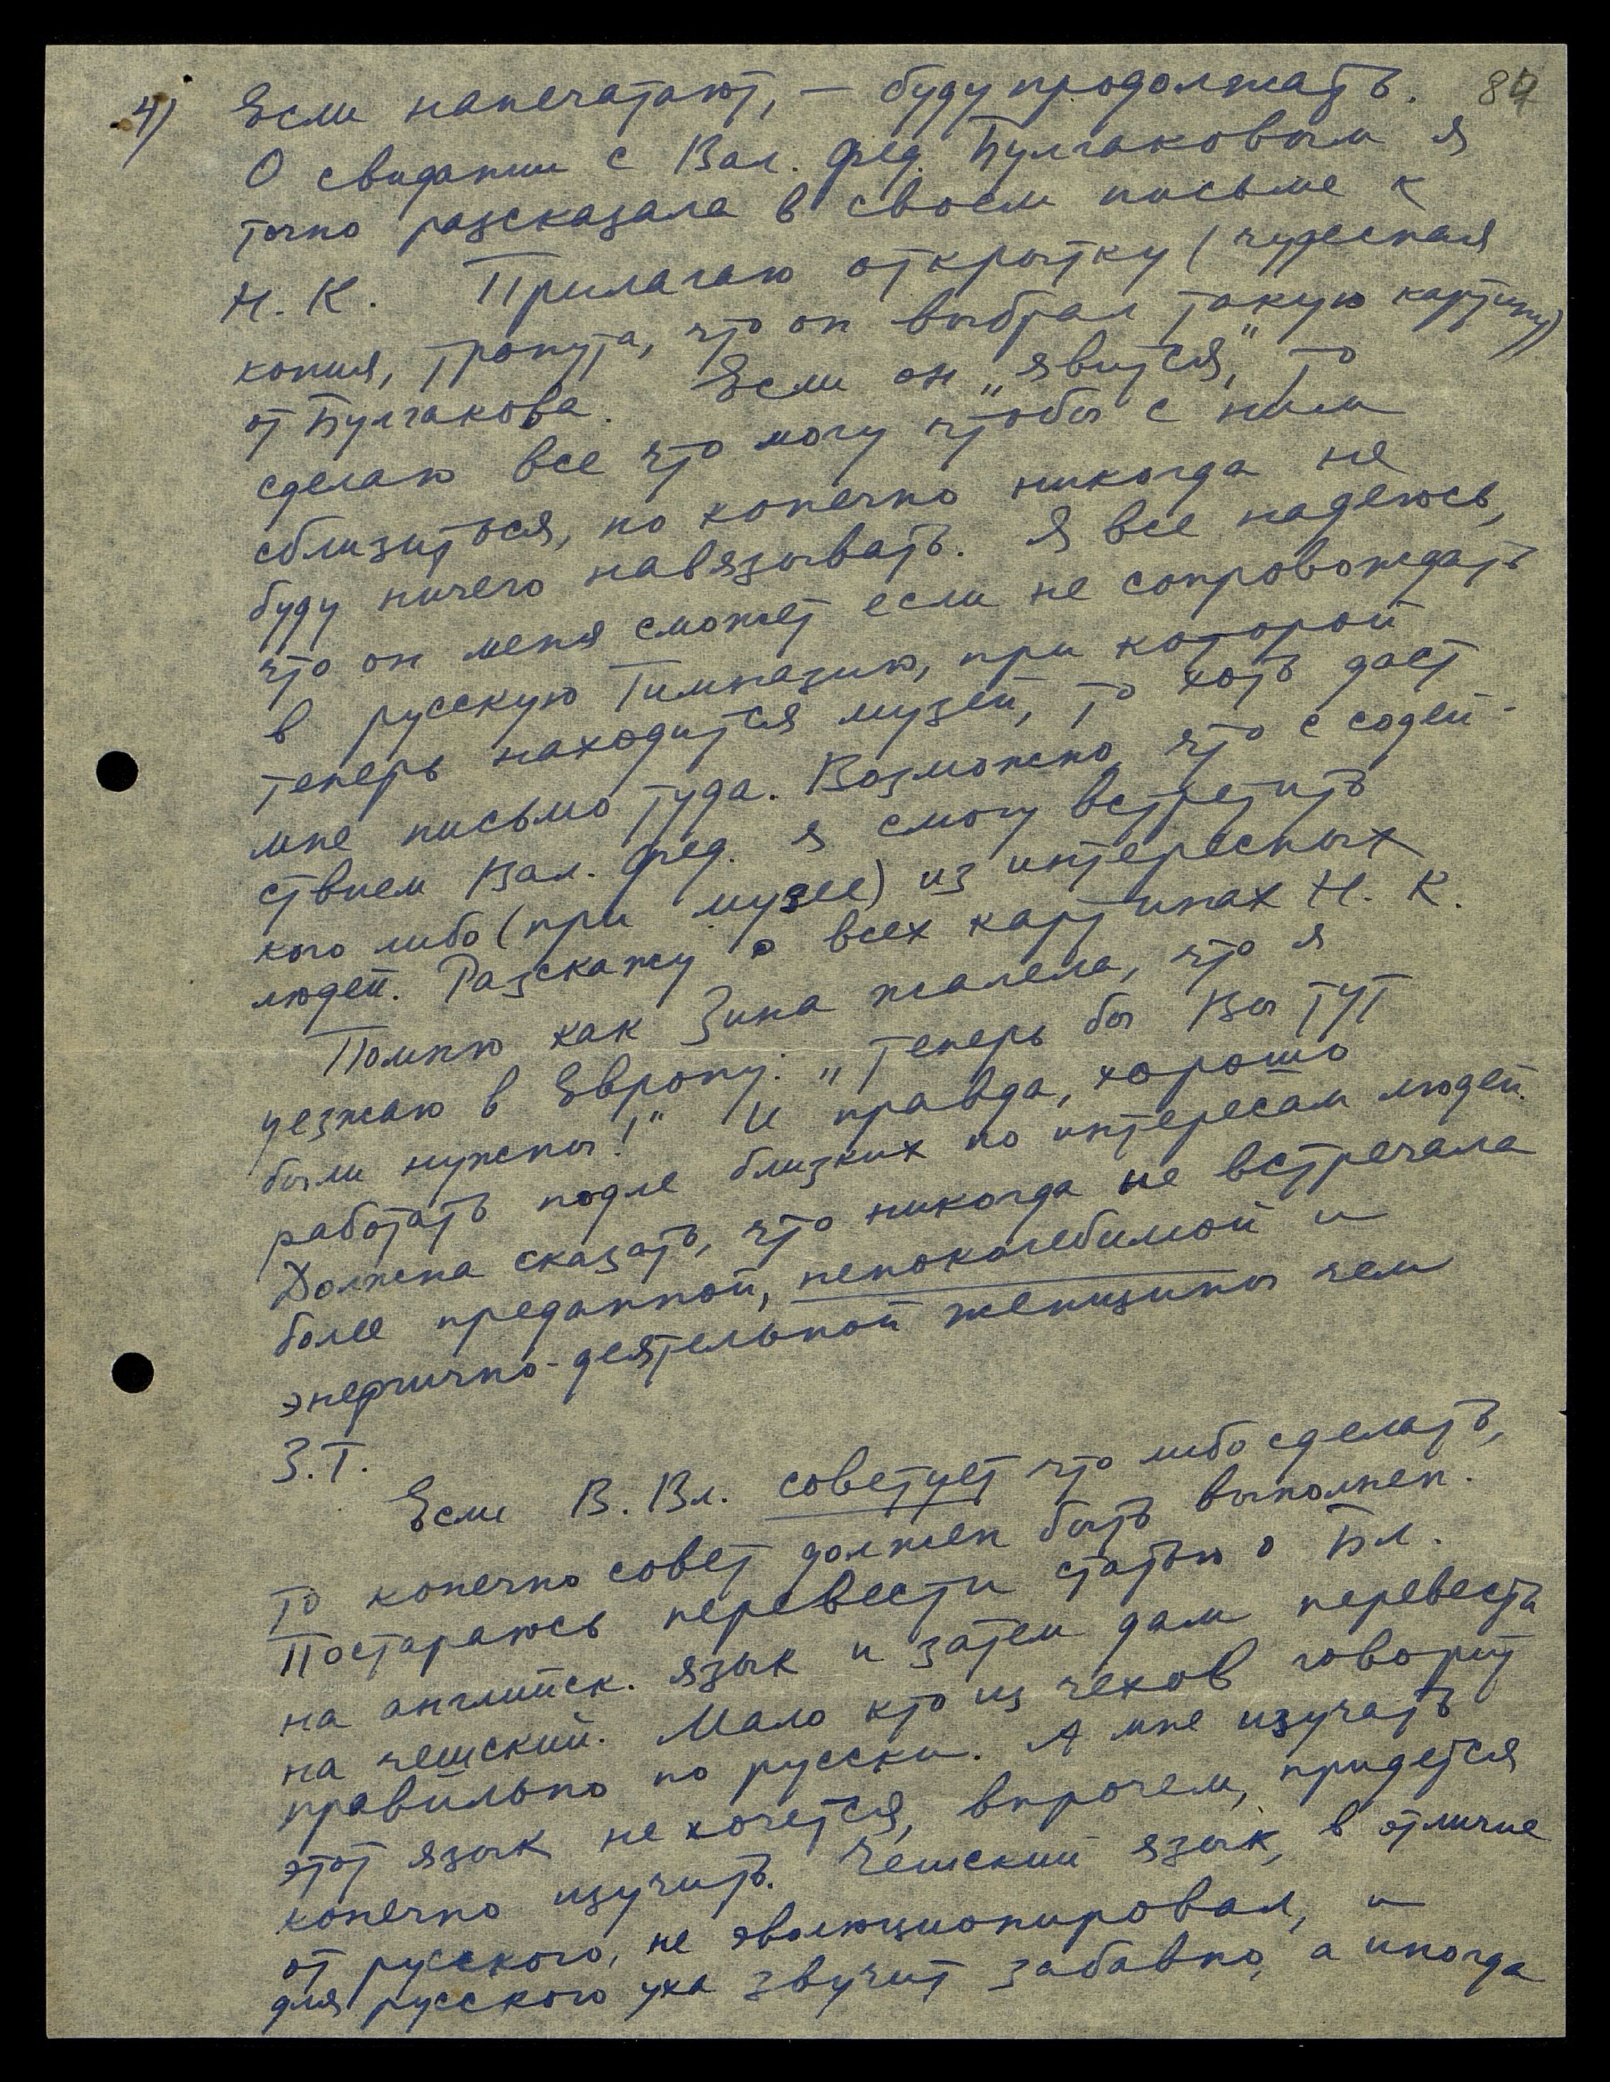 4) Если напечатают, — буду продолжать. 87
О свидании с Вал. Фед. Булгаковым я
точно разсказала в своем письме к
Н. К. Прилагаю открытку (чудесная
копия, тронута, что он выбрал такую картину)
от Булгакова. Если он „явится", то
сделаю все что могу чтобы с ним
сблизиться, но конечно никогда не
буду ничего навязывать. Я все надеюсь,
что он меня сможет если не сопровождать
в русскую Гимназию, при которой
теперь находится музей, то хоть даст
мне письмо туда. Возможно что с содей-
ствием Вал. Фед. я смогу встретить
кого либо (при музее) из интересных
людей. Разскажу о всех картинах Н. К.
Помню как Зина жалела, что я
уезжаю в Европу: „Теперь бы Вы тут
были нужны!" И правда, хорошо
работать подле близких по интересам людей.
Должна сказать, что никогда не встречала
более преданной, непоколебимой и
энергично-деятельной женщины чем
З.Г.
Если В. Вл. советует что либо сделать,
то конечно совет должен быть выполнен.
Постараюсь перевести статью о Бл.
на английск. язык и затем дам перевести
на чешский. Мало кто из чехов говорит
правильно по русски. А мне изучать
этот язык не хочется, впрочем, придется
конечно изучить. Чешский язык, в отличие
от русского, не эволюционировал, и
для русского уха звучит забавно, а иногда